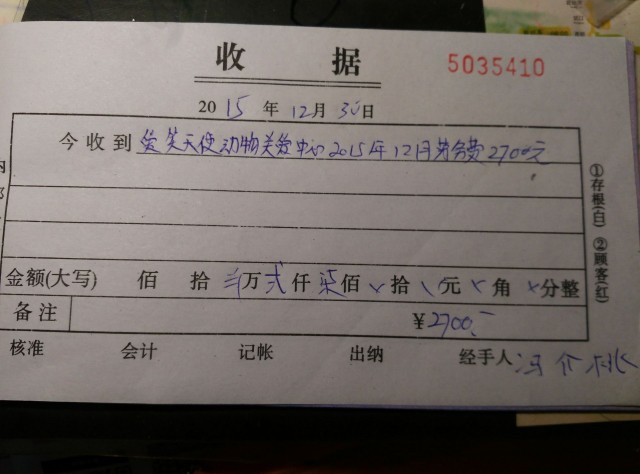 收 据
5035410
2015年12月30日
今收到 爱笑天使动物关爱中心2015年12月劳务费2700元
金额(大写) 佰 拾 万 贰仟 柒佰 拾 元 角 分整
备注 ¥2700.-
核准 会计 记帐 出纳 经手人:冯
①存根(白) ②顾客(红)